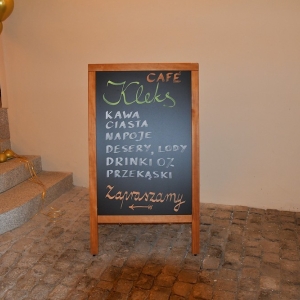 CAFE
Kleks
KAWA
CIASTA
NAPOJE
DESERY, LODY
DRINKI OZ
PRZEKĄSKI
Zapraszamy